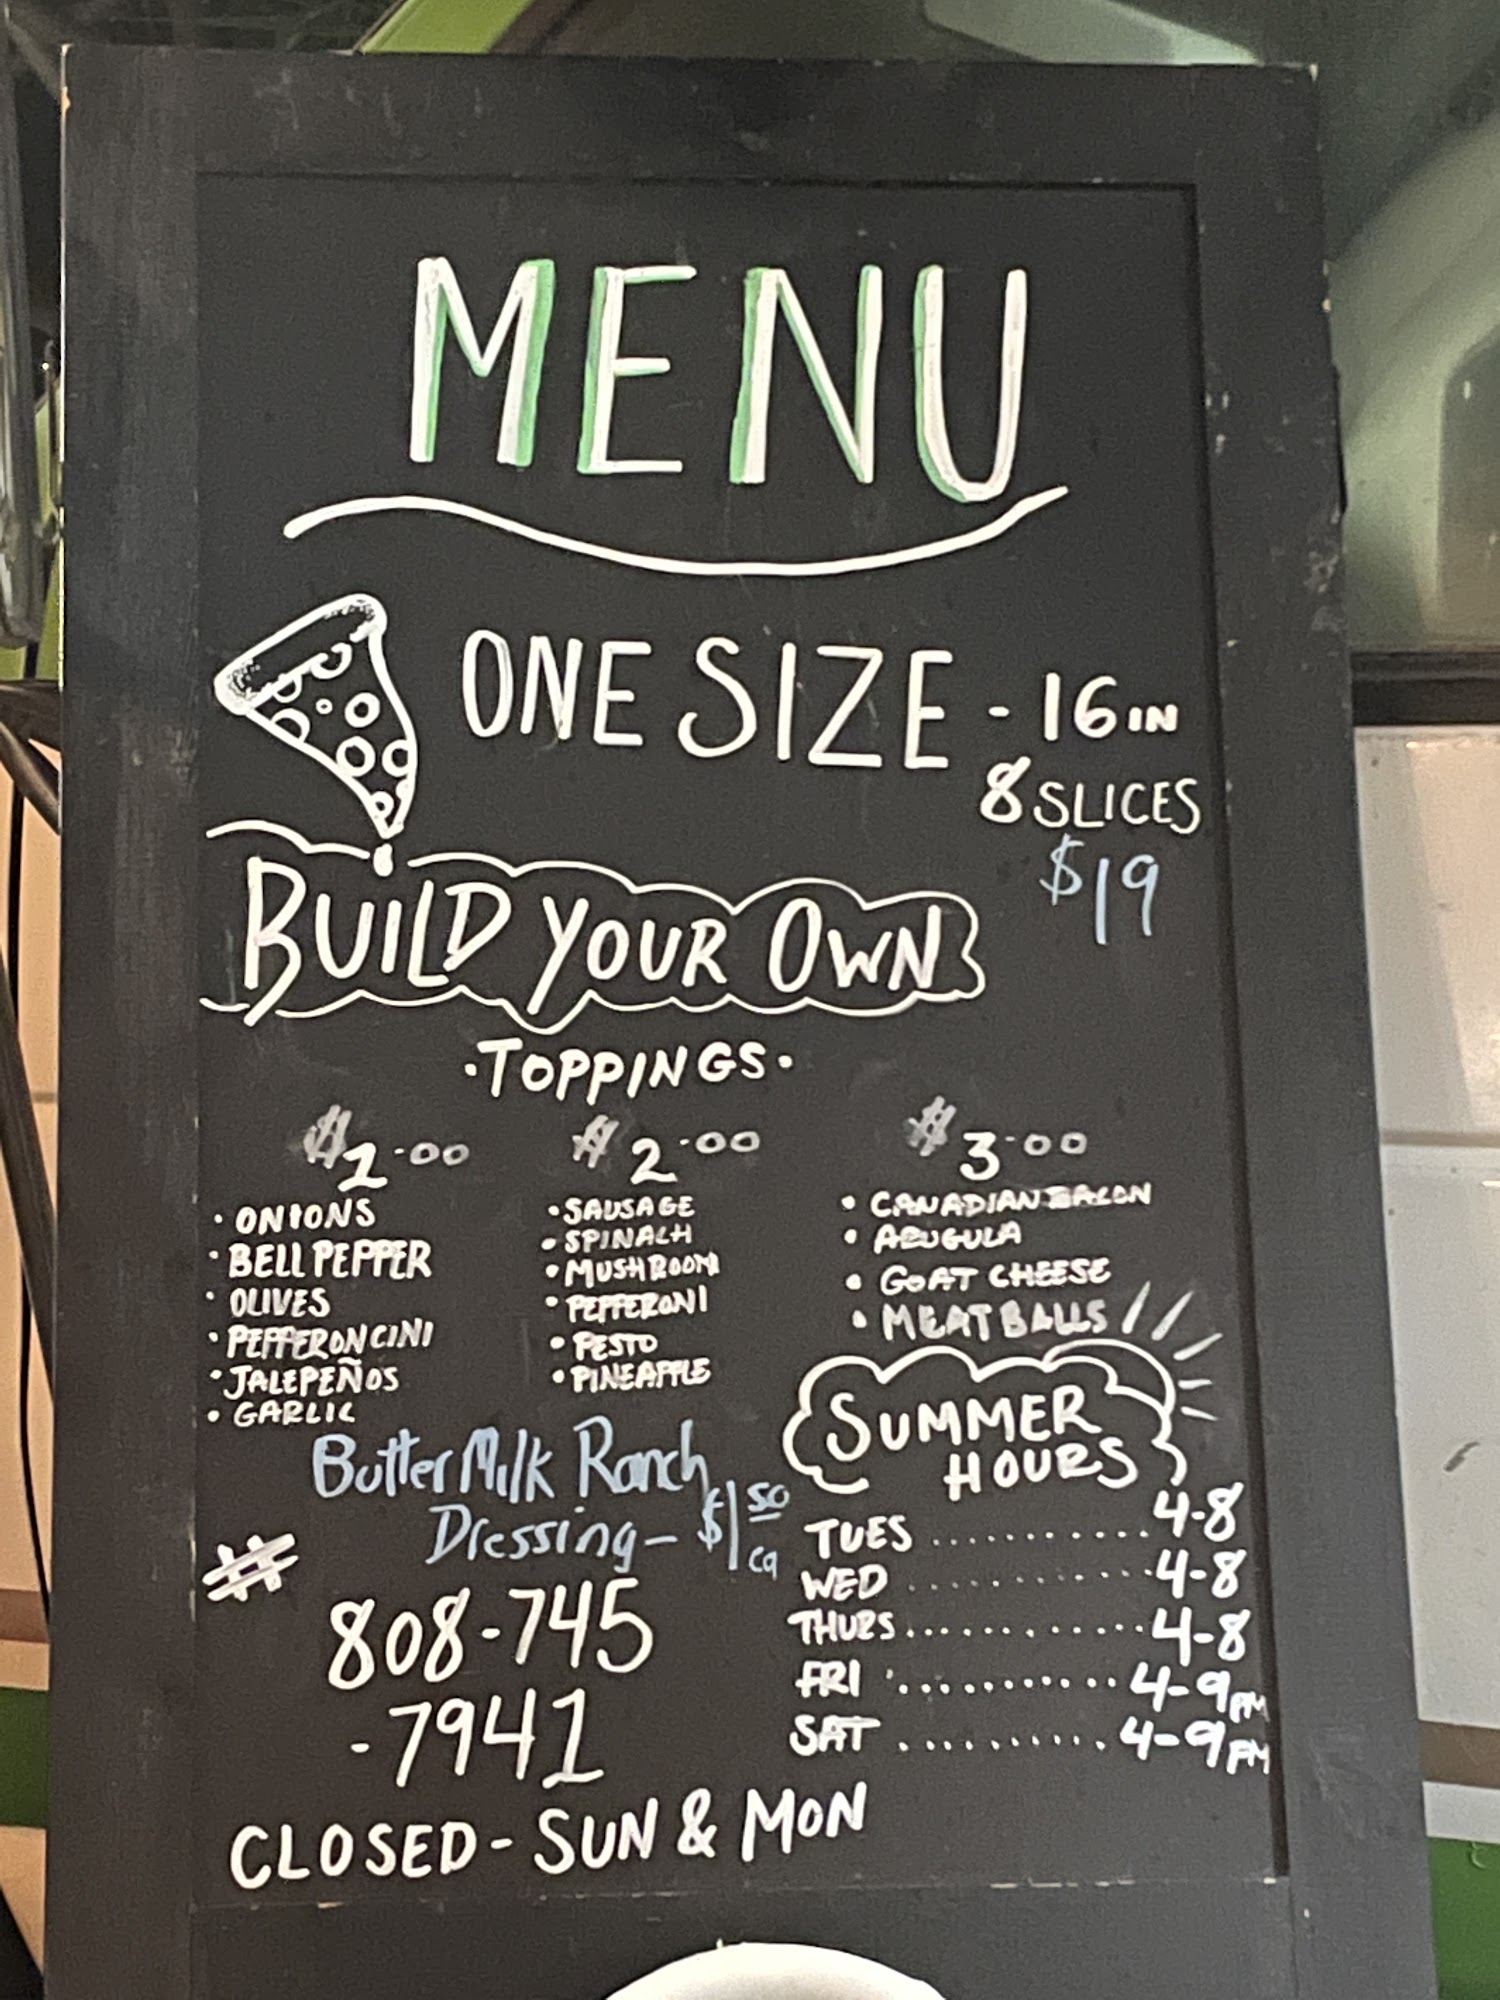 MENU
ONE SIZE - 16 IN
8 SLICES
$19
BUILD YOUR OWN
·TOPPINGS·
$1.00
· ONIONS
· BELL PEPPER
· OLIVES
· PEPPERONCINI
· JALEPEÑOS
· GARLIC
$2.00
· SAUSAGE
· SPINACH
· MUSHROOM
· PEPPERONI
· PESTO
· PINEAPPLE
$3.00
· CANADIAN BACON
· ARUGULA
· GOAT CHEESE
· MEATBALLS
Butter Milk Ranch
Dressing - $1 50 ea
SUMMER
HOURS
TUES ........... 4-8
WED ........... 4-8
THURS ............ 4-8
FRI ............ 4-9 PM
SAT .......... 4-9 PM
#
808-745
-7941
CLOSED - SUN & MON